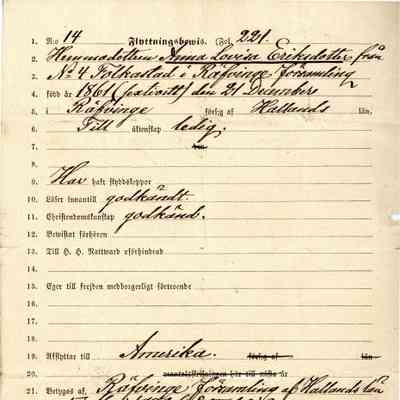 1. N:o 14 Flyttningsbewis. (Fol. 221.
2. Hemmadottern Anna Lovisa Eriksdotter från
3. No 4 Folkastad i Räfvinge församling
4. född år 1861 (sextioett) den 21 Decembers
5. i Räfvinge förs:g af Hallands län,
6. Till äktenskap ledig.
7.
8.
9. Har haft skyddskoppor
10. Läser innantill godkändt.
11. Christendomskunskap godkänd.
12. Bewistat förhören
13. Till H. H. Nattward oförhindrad
14.
15. Eger till frejden medborgerligt förtroende
16.
17.
18.
19. Afflyttar till Amerika. förs:g af län
20. mantalsskrifningen här till nästa år
21. Betygas af, Räfvinge församling af Hallands län